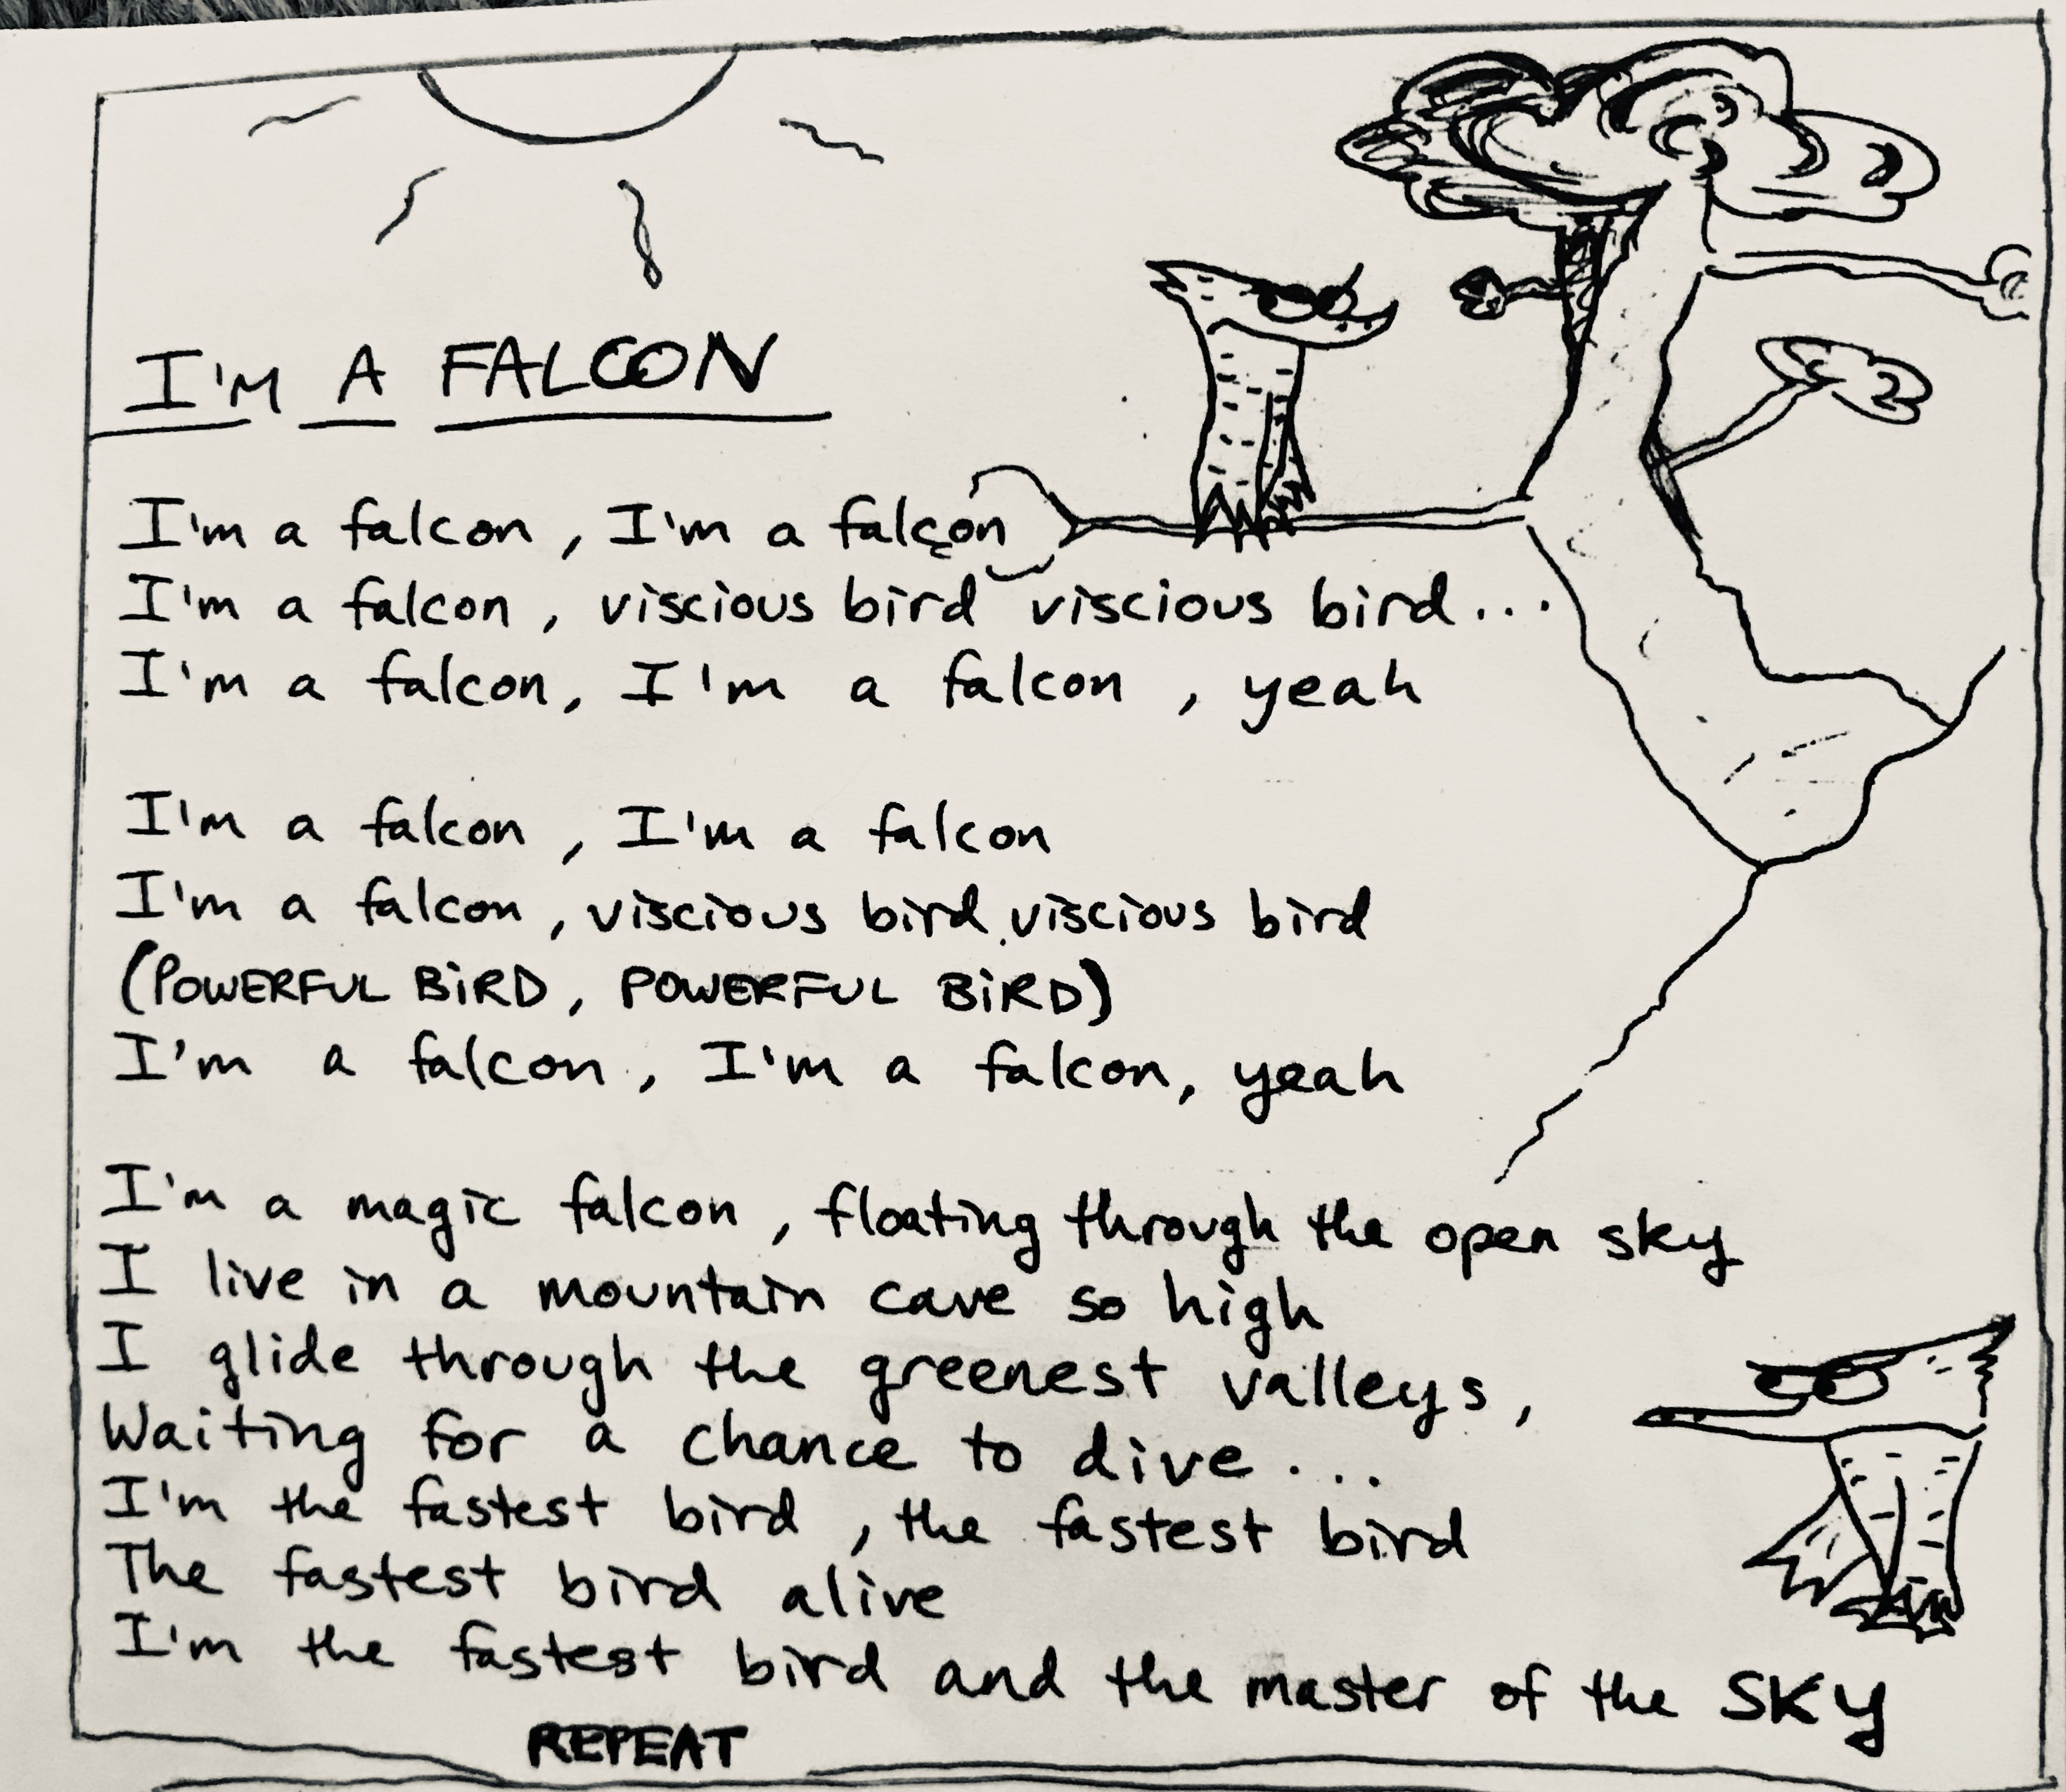 I'M A FALCON
I'm a falcon, I'm a falcon
I'm a falcon, viscious bird viscious bird...
I'm a falcon, I'm a falcon, yeah
I'm a falcon, I'm a falcon
I'm a falcon, viscious bird, viscious bird
(POWERFUL BiRD, POWERFUL BiRD)
I'm a falcon, I'm a falcon, yeah
I'm a magic falcon, floating through the open sky
I live in a mountain cave so high
I glide through the greenest valleys,
Waiting for a chance to dive...
I'm the fastest bird, the fastest bird
The fastest bird alive
I'm the fastest bird and the master of the SKY
REPEAT